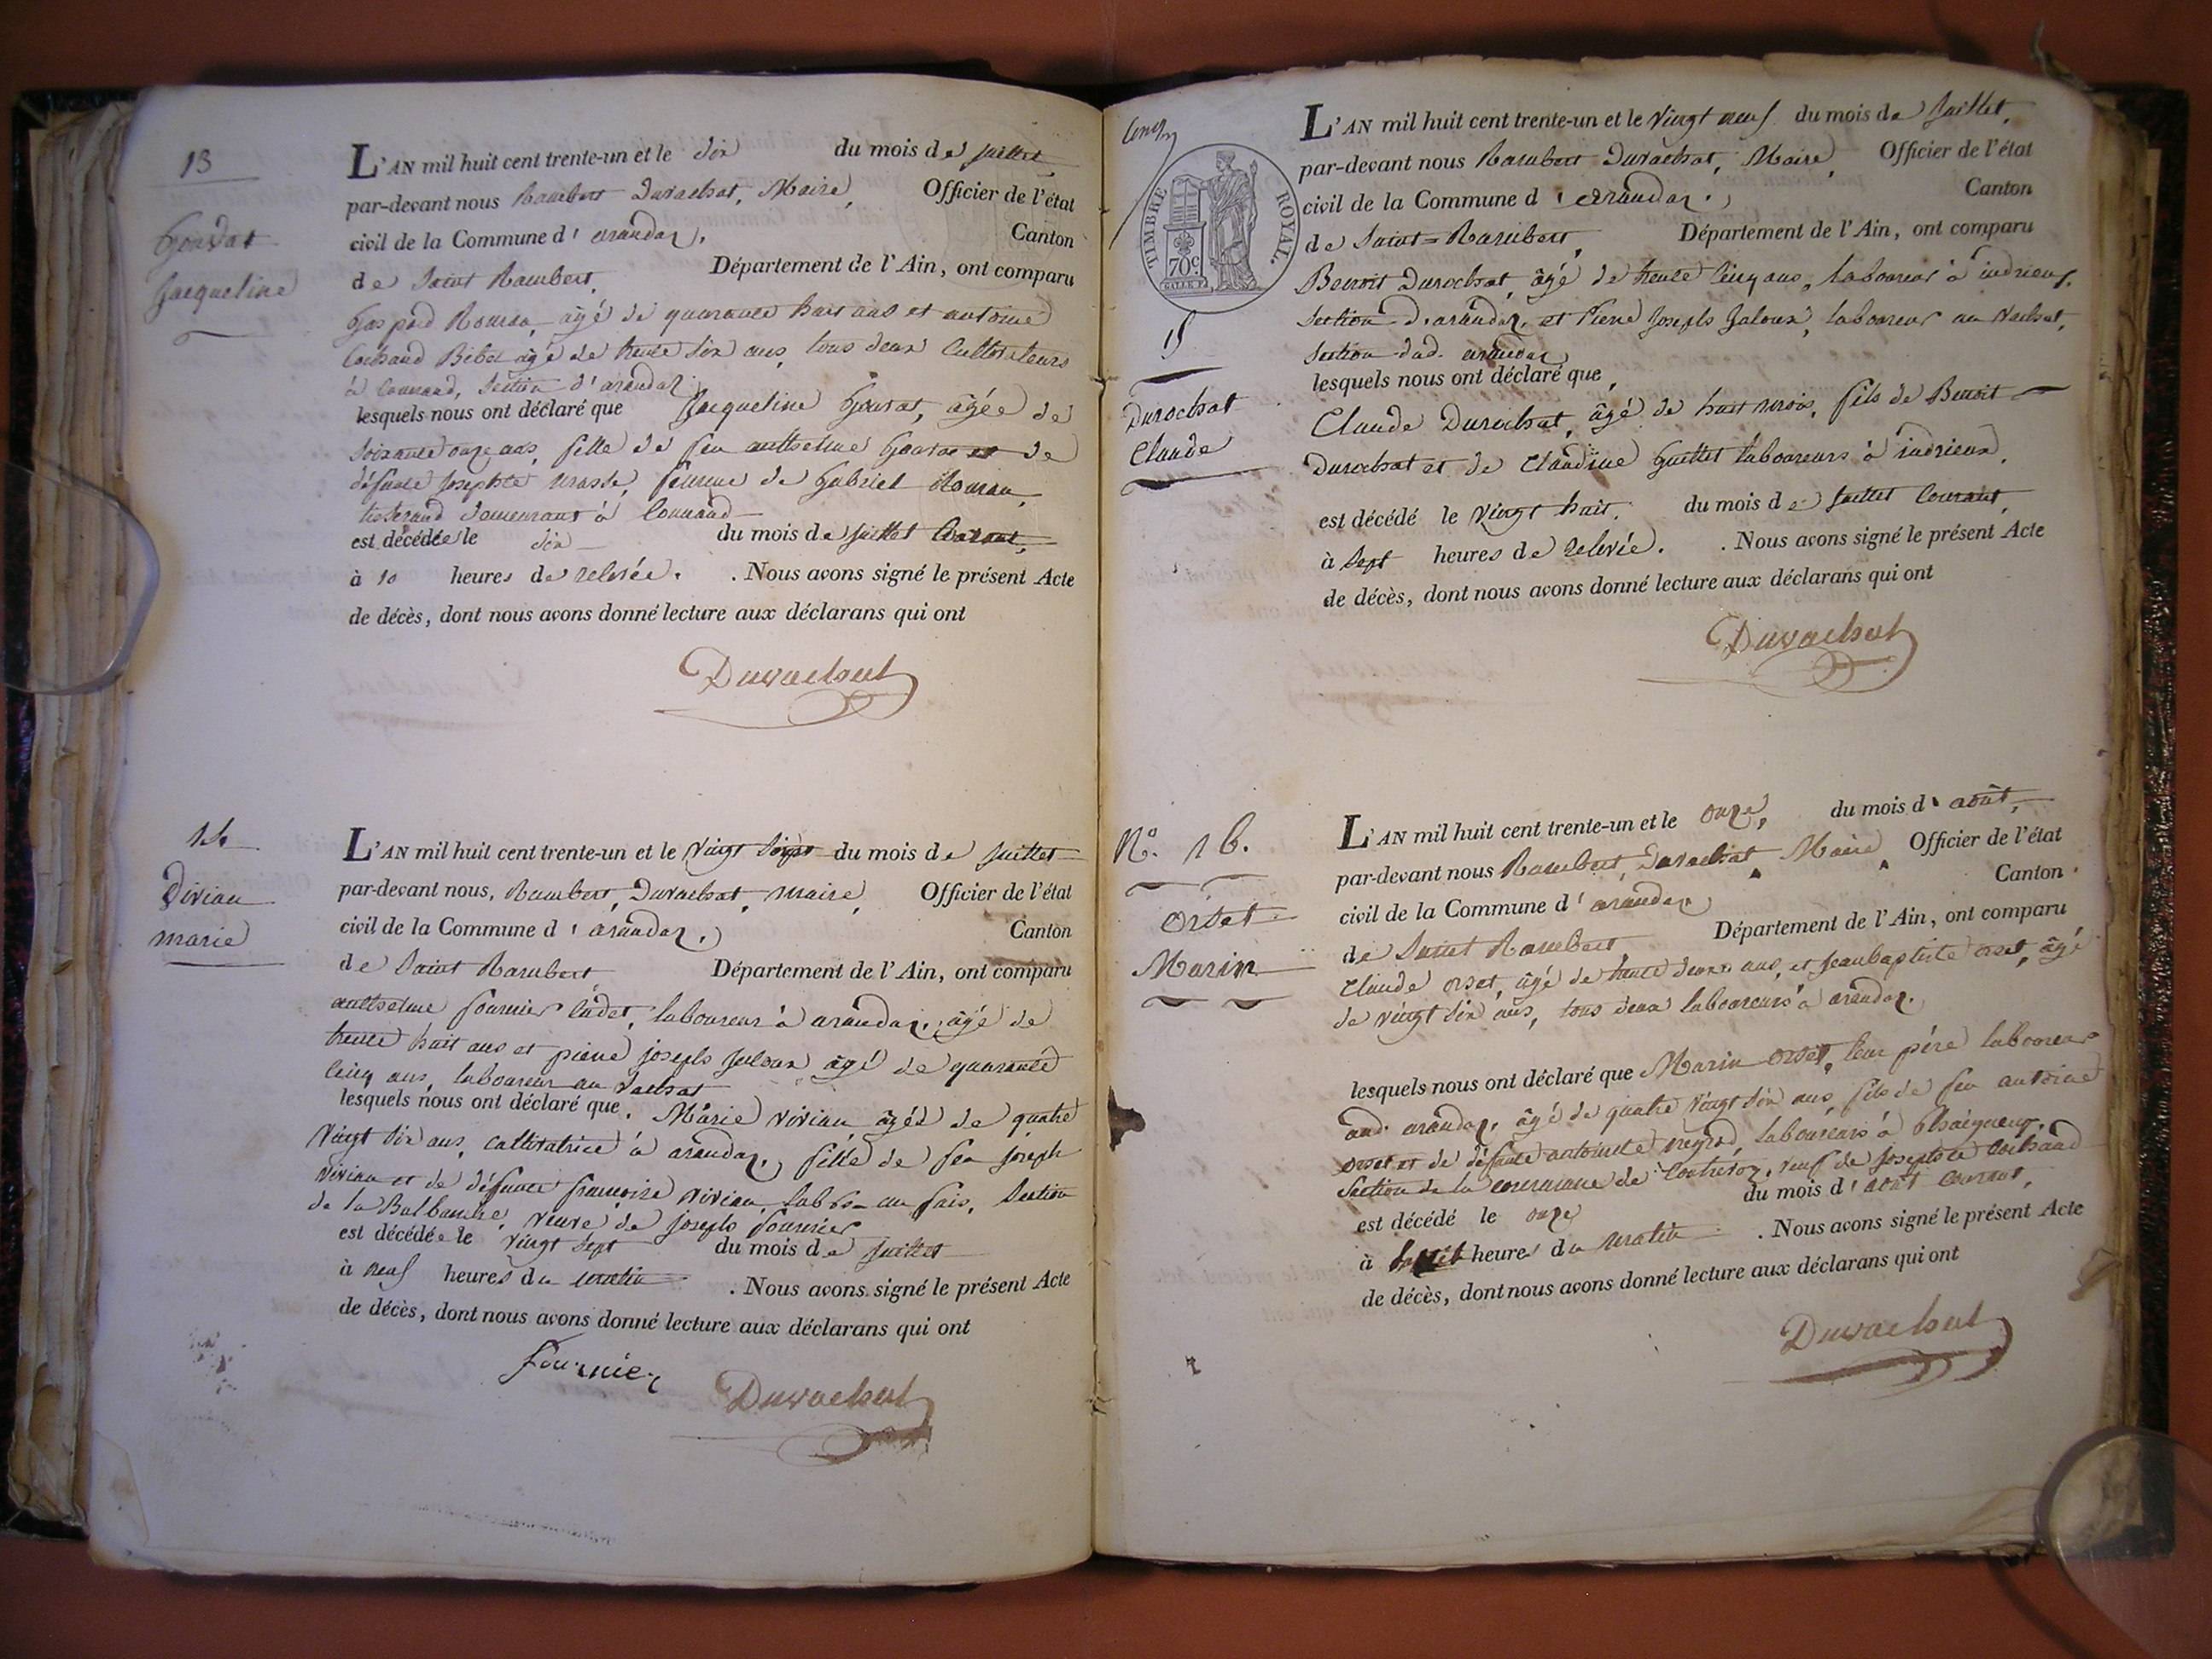 13
Gourdat
Jacqueline
L'AN mil huit cent trente-un et le dix du mois de juillet
par-devant nous Rambert Duvachat, Maire, Officier de l'état
civil de la Commune d'arandaz. Canton
de Saint Rambert. Département de l'Ain, ont comparu
âgé de quarante huit ans et antoine
âgé de trente six ans, tous deux Cultivateurs
à Connand, Section d'arandaz
lesquels nous ont déclaré que Jacqueline Gourat, âgée de
soixante onze ans, fille de feu anthelme de
défunte Josephte femme de Gabriel
tisserand demeurant à Connand
est décédée le dix du mois de juillet Courant,
à 10 heures de relevée. . Nous avons signé le présent Acte
de décès, dont nous avons donné lecture aux déclarans qui ont
Duvachat
14
Vivian
marie
L'AN mil huit cent trente-un et le vingt sept du mois de juillet
par-devant nous, Rambert, Duvachat, maire, Officier de l'état
civil de la Commune d'arandaz. Canton
de Saint Rambert Département de l'Ain, ont comparu
anthelme fournier Cadet, laboureur à arandaz, âgé de
trente huit ans et pierre joseph Jaloux âgé de quarante
cinq ans, laboureur au Vachat
lesquels nous ont déclaré que, Marie vivian âgée de quatre
vingt six ans, cultivatrice à arandaz, fille de feu joseph
vivian et de défunte françoise vivian, lab.rs au fais, Section
de la Balbanche, veuve de joseph fournier
est décédée le vingt sept du mois de juillet
à neuf heures du matin . Nous avons signé le présent Acte
de décès, dont nous avons donné lecture aux déclarans qui ont
fournier
Duvachat
TIMBRE ROYAL.
70c
15
Durochat
Claude
L'AN mil huit cent trente-un et le vingt neuf du mois de juillet,
par-devant nous Rambert Duvachat, Maire, Officier de l'état
civil de la Commune d'arandaz. Canton
de Saint=Rambert, Département de l'Ain, ont comparu
Benoit Durochat, âgé de trente cinq ans, laboureur à indrieux,
Section d'arandaz, et Pierre Joseph Jaloux, laboureur au Vachat,
Section dud. arandaz
lesquels nous ont déclaré que,
Claude Durochat, âgé de huit mois, fils de Benoit
Durochat et de Claudine Guillet laboureurs à indrieux,
est décédé le vingt huit. du mois de juillet Courant,
à sept heures de relevée. . Nous avons signé le présent Acte
de décès, dont nous avons donné lecture aux déclarans qui ont
Duvachat
No. 16.
Orset
Marin
L'AN mil huit cent trente-un et le onze, du mois d'août,
par-devant nous Rambert Duvachat Maire Officier de l'état
civil de la Commune d'arandaz Canton
de Saint Rambert Département de l'Ain, ont comparu
Claude orset, âgé de trente deux ans, et jeanbaptiste orset, âgé
de vingt six ans, tous deux laboureurs à arandaz.
lesquels nous ont déclaré que Marin Orset, leur père laboureur
aud. arandaz, âgé de quatre vingt six ans, fils de feu antoine
orset et de défunte antoinette laboureurs à
Section de la commune de veuf de josephte Cochand
est décédé le onze du mois d'août courant,
à heures du matin . Nous avons signé le présent Acte
de décès, dont nous avons donné lecture aux déclarans qui ont
Duvachat